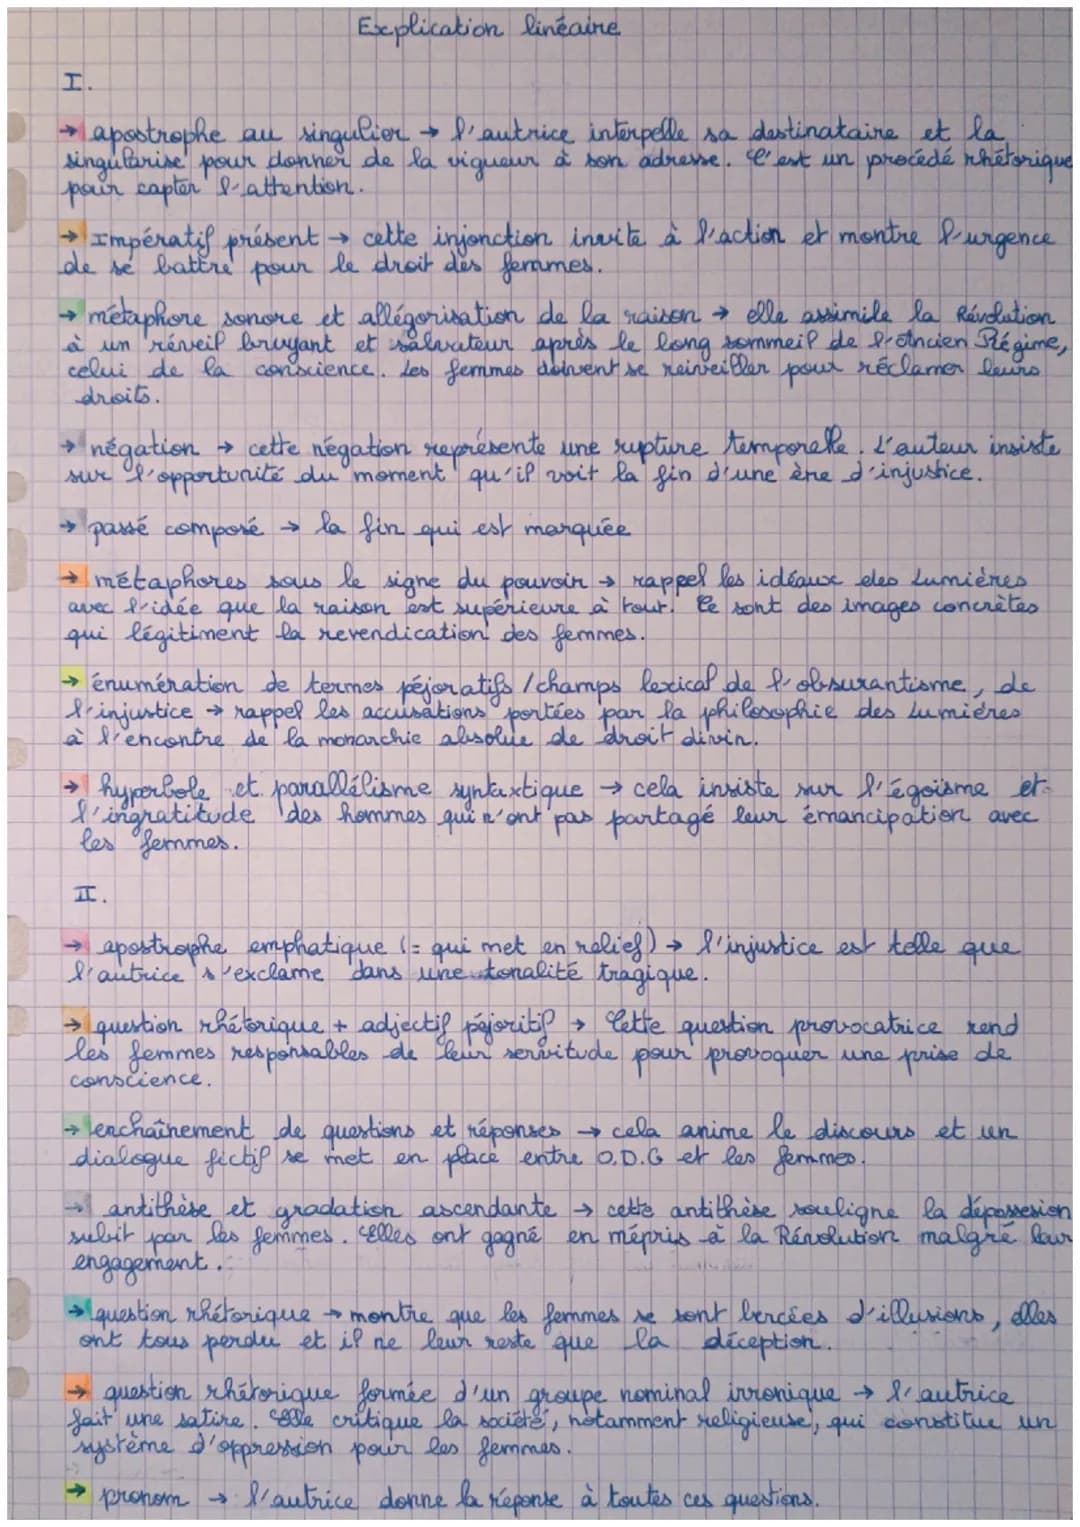 Explication linéaire
I.
→ apostrophe au singulier → l'autrice interpelle sa destinataire et la
singularise pour donner de la vigueur à son adresse. C'est un procédé rhétorique
pour capter l'attention.
→ Impératif présent → cette injonction invite à l'action et montre l'urgence
de se battre pour le droit des femmes.
→ métaphore sonore et allégorisation de la raison → elle assimile la Révolution
à un réveil bruyant et salvateur après le long sommeil de l'Ancien Régime,
celui de la conscience. Les femmes doivent se reinveiller pour réclamer leurs
droits.
→ négation → cette négation représente une rupture temporelle. L'auteur insiste
sur l'opportunité du moment qu'il voit la fin d'une ène d'injustice.
→ passé composé → la fin qui est marquée
→ métaphores sous le signe du pouvoir → rappel les idéaux des Lumières
avec l'idée que la raison est supérieure à tout. Ce sont des images concrètes
qui légitiment la revendication des femmes.
→ énumération de termes péjoratifs / champs lexical de l'obsurantisme, de
l'injustice → rappel les accusations portées par la philosophie des Lumières
à l'encontre de la monarchie absolue de droit divin.
→ hyperbole et parallélisme syntaxtique → cela insiste sur l'égoïsme et
l'ingratitude des hommes qui n'ont pas partagé leur émancipation avec
les femmes.
II.
→ apostrophe emphatique (= qui met en relief) → l'injustice est telle que
l'autrice s'exclame dans une tonalité tragique.
→ question rhétorique + adjectif péjoritif → Cette question provocatrice rend
les femmes responsables de leur servitude pour provoquer une prise de
conscience.
→ enchaînement de questions et réponses → cela anime le discours et un
dialogue fictif se met en place entre O.D.G et les femmes.
→ antithèse et gradation ascendante → cette antithèse souligne la dépossesion
subit par les femmes. Elles ont gagné en mépris à la Révolution malgré leur
engagement.
→ question rhétorique → montre que les femmes se sont bercées d'illusions, elles
ont tous perdu et il ne leur reste que la déception.
→ question rhétorique formée d'un groupe nominal irronique → l'autrice
fait une satire. Elle critique la société, notamment religieuse, qui constitue un
système d'oppression pour les femmes.
→ pronom → l'autrice donne la réponse à toutes ces questions.